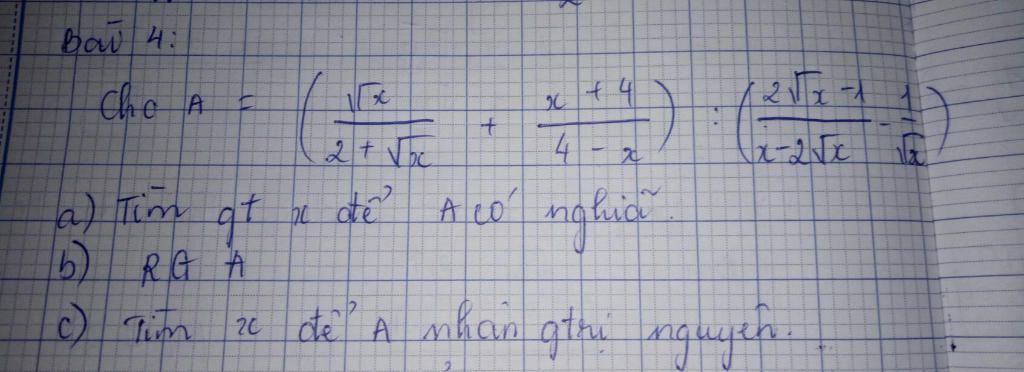 Bài 4:
Cho A = (√x / (2 + √x) + (x + 4) / (4 - x)) : ((2√x - 1) / (x - 2√x) - 1 / √x)
a) Tìm gt x để A có nghĩa.
b) RG A
c) Tìm x để A nhận gtrị nguyên.